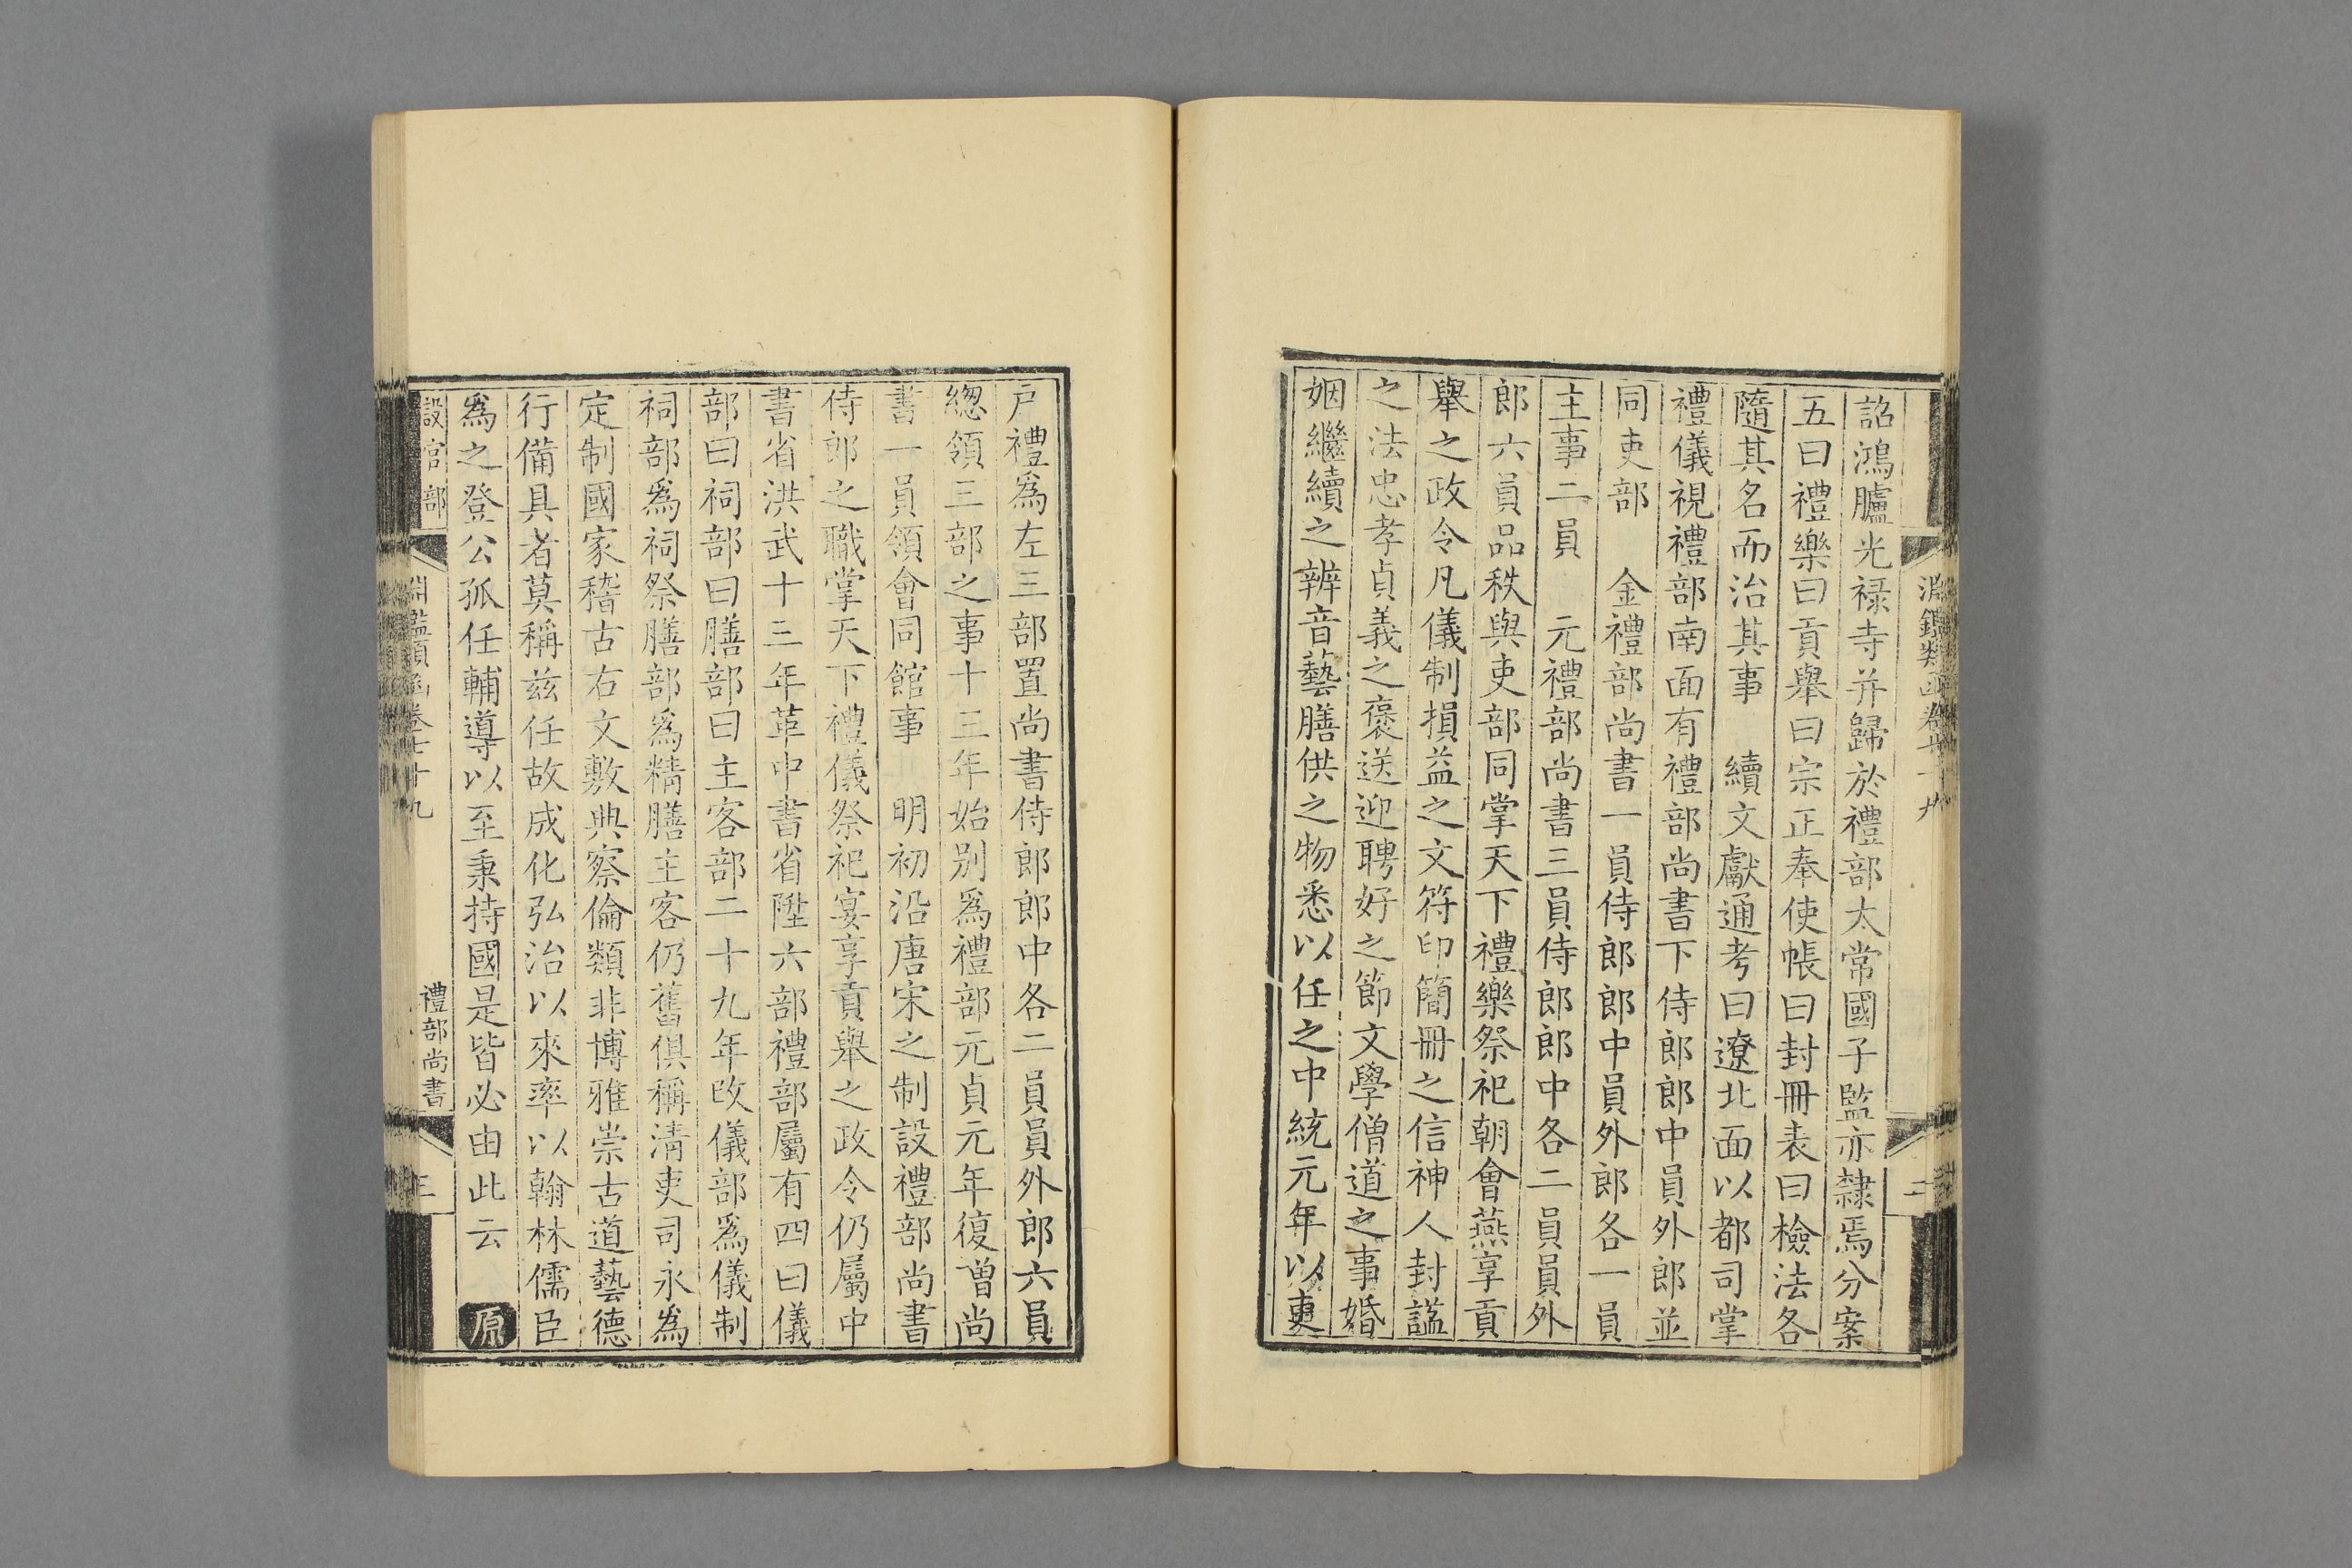 淵鑑類函卷七十九
二
詔鴻臚光禄寺并歸於禮部太常國子監亦隸焉分案
五曰禮樂曰貢舉曰宗正奉使帳曰封冊表曰檢法各
隨其名而治其事　續文獻通考曰遼北面以都司掌
禮儀視禮部南面有禮部尚書下侍郎郎中員外郎並
同吏部　金禮部尚書一員侍郎郎中員外郎各一員
主事二員　元禮部尚書三員侍郎郎中各二員員外
郎六員品秩與吏部同掌天下禮樂祭祀朝會燕享貢
舉之政令凡儀制損益之文符印簡冊之信神人封諡
之法忠孝貞義之褒送迎聘好之節文學僧道之事婚
姻繼續之辨音藝膳供之物悉以任之中統元年以吏
戶禮為左三部置尚書侍郎郎中各二員員外郎六員
緫領三部之事十三年始别為禮部元貞元年復曾尚
書一員領會同館事　明初沿唐宋之制設禮部尚書
侍郎之職掌天下禮儀祭祀宴享貢舉之政令仍屬中
書省洪武十三年革中書省陞六部禮部屬有四曰儀
部曰祠部曰膳部曰主客部二十九年改儀部為儀制
祠部為祠祭膳部為精膳主客仍舊俱稱淸吏司永為
定制國家稽古右文敷典察倫類非博雅崇古道藝德
行備具者莫稱兹任故成化弘治以來率以翰林儒臣
為之登公孤任輔導以至秉持國是皆必由此云　原
設官部
淵鑑類函卷七十九
禮部尚書
三